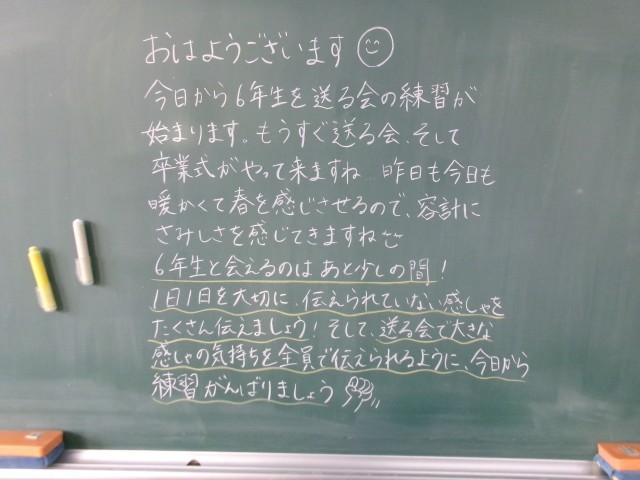 おはようございます
今日から6年生を送る会の練習が
始まります。もうすぐ送る会、そして
卒業式がやって来ますね 昨日も今日も
暖かくて春を感じさせるので、容計に
さみしさを感じてきますね
6年生と会えるのは あと少しの間!
1日1日を大切に、伝えられていない感しゃを
たくさん伝えましょう!そして、送る会で大きな
感しゃの気持ちを全員で伝えられるように、今日から
練習がんばりましょう